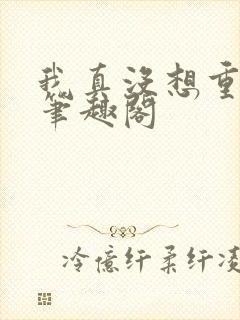 我真没想重
笔趣阁
冷億纤柔纤凌